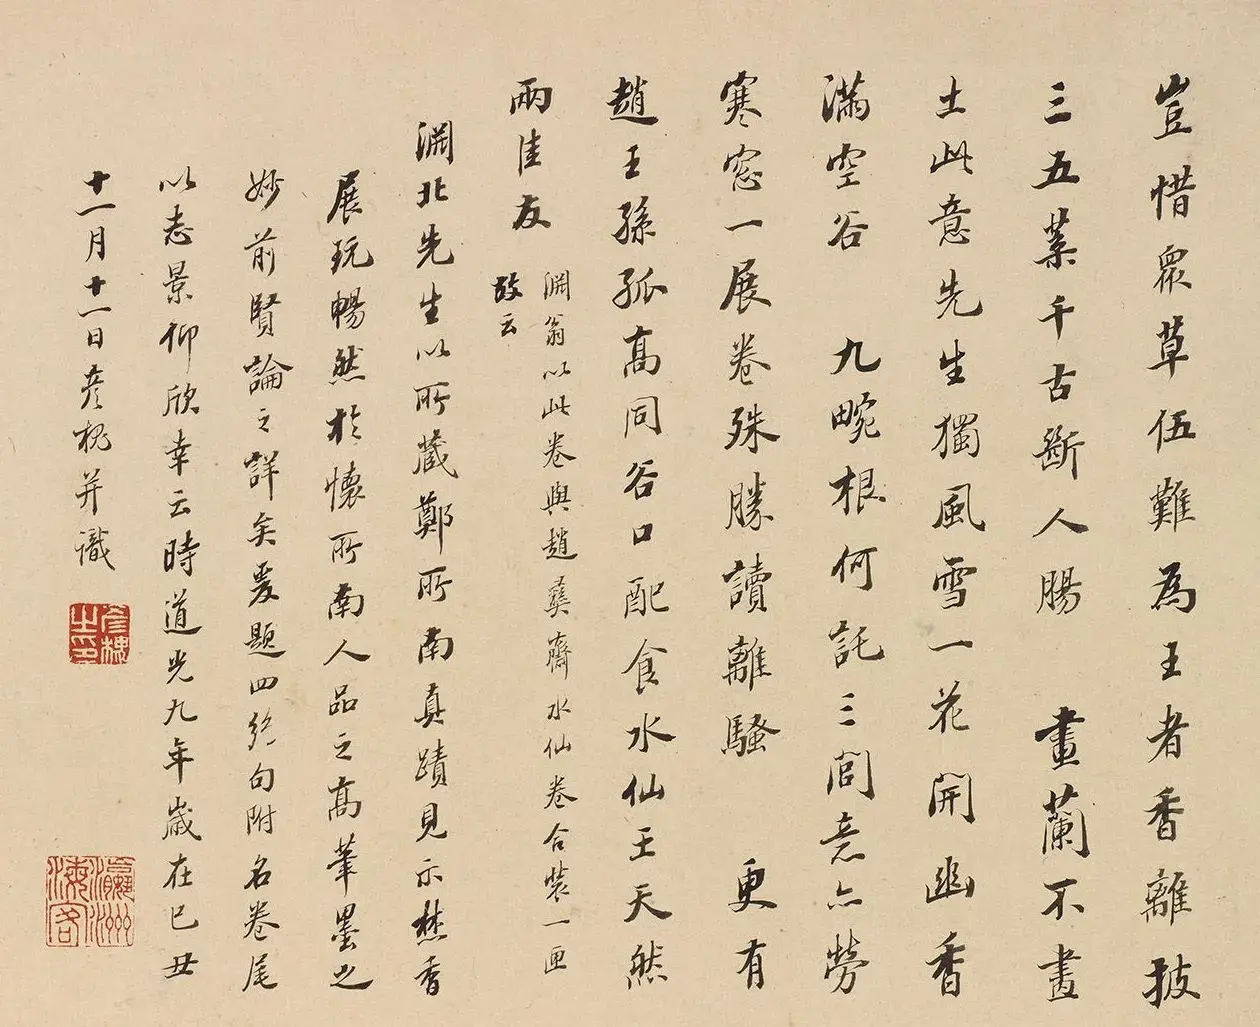 豈惜眾草伍難為王者香離披
三五葉千古斷人腸　畫蘭不畫
土此意先生獨風雪一花開幽香
滿空谷　九畹根何託三閭意亦勞
寒窓一展卷殊勝讀離騷　更有
趙王孫孤高同谷口配食水仙王天然
兩佳友
淵翁以此卷與趙彝齋水仙卷合裝一匣
故云
淵北先生以所藏鄭所南真蹟見示焚香
展玩暢然於懷所南人品之高筆墨之
妙前賢論之詳矣爰題四絕句附名卷尾
以志景仰欣幸云時道光九年歲在己丑
十一月十一日彥槐并識
彥槐之印
瀛洲海客